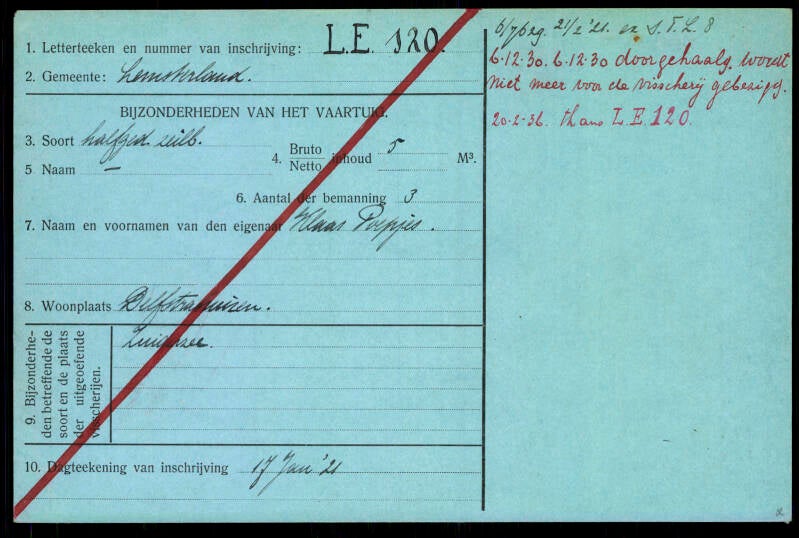 1. Letterteeken en nummer van inschrijving: L.E. 120.
2. Gemeente: Lemsterland.
BIJZONDERHEDEN VAN HET VAARTUIG.
3. Soort halfged. zeilb.
4. Bruto Netto inhoud 5 M³.
5 Naam —
6. Aantal der bemanning 3
7. Naam en voornamen van den eigenaar Klaas Poepjes.
8. Woonplaats Delfstrahuizen.
9. Bijzonderhe-
den betreffende de
soort en de plaats
der uitgeoefende
visscherijen.
Zuiderzee.
10. Dagteekening van inschrijving 17 Jan '21
6/7629. 21/2 '21. S.T.L. 8
6.12.30. 6.12.30 doorgehaald. wordt
niet meer voor de visscherij gebezigd.
20-2-36. thans L.E. 120.